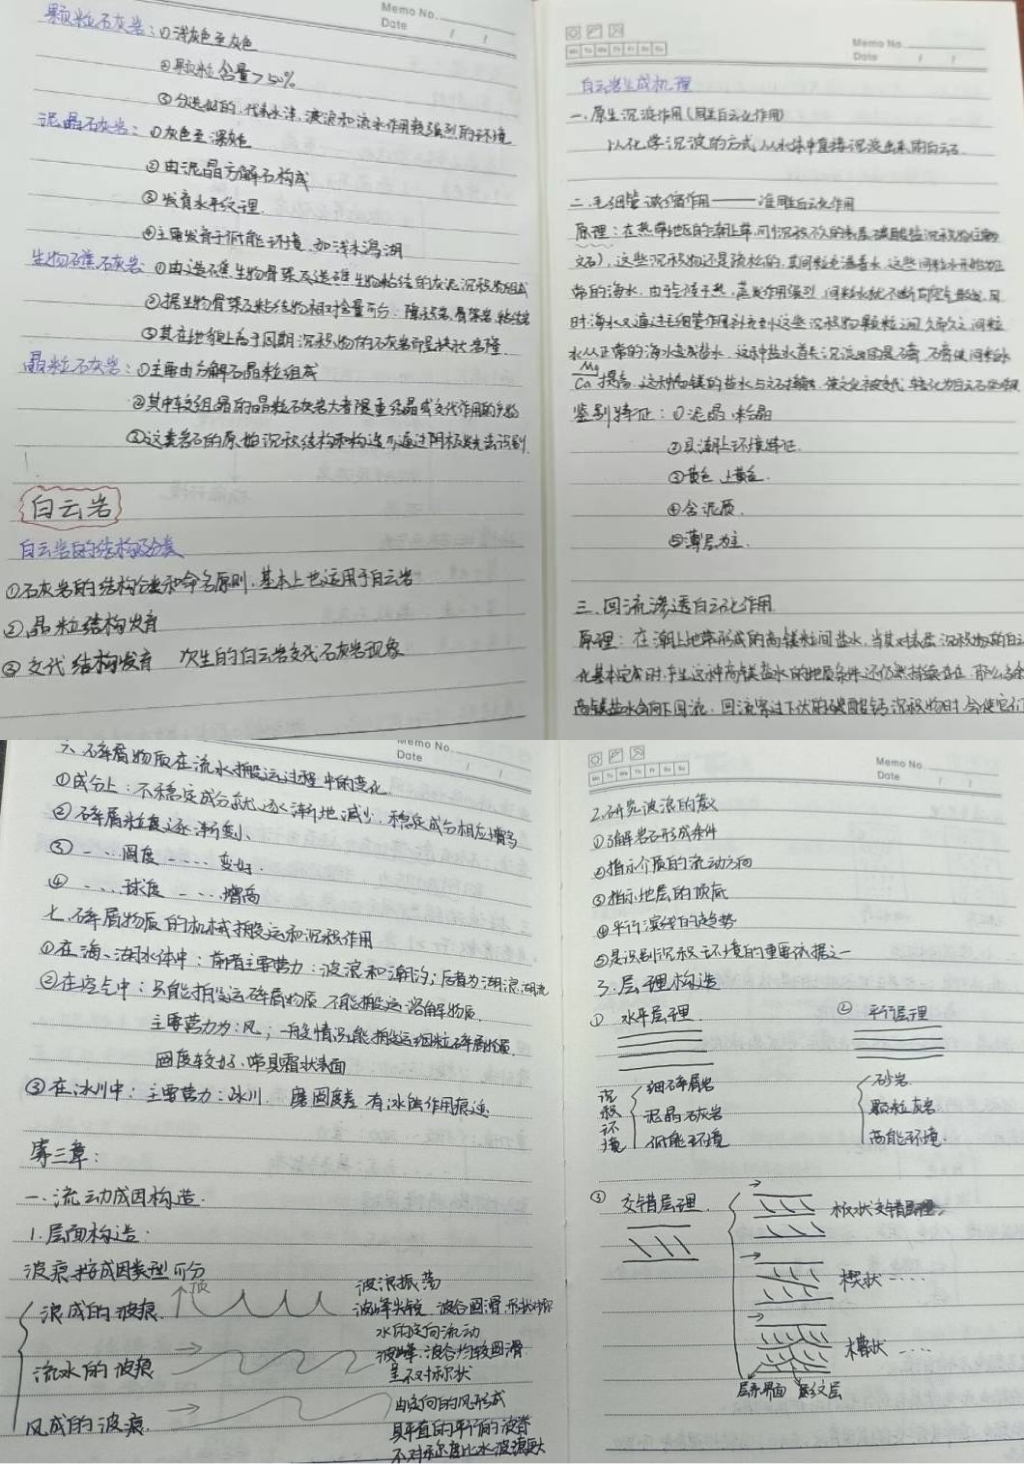 Memo No.
Date / /
颗粒石灰岩：①浅灰色至灰色
②颗粒含量>50%
③分选好的，代表水浅，波浪和流水作用较强烈的环境
泥晶石灰岩：①灰色至深灰色
②由泥晶方解石构成
③发育水平纹理
④主要发育于低能环境，如浅水潟湖
生物礁石灰岩：①由造礁生物骨架及造礁生物粘结的灰泥沉积物组成
②据生物骨架及粘结物相对含量可分：障积岩、骨架岩、粘结岩
③其在地貌上高于同期沉积物的石灰岩而呈块状岩隆
晶粒石灰岩：①主要由方解石晶粒组成
②其中较粗晶的晶粒石灰岩大者是重结晶或交代作用的产物
③这类岩石的原始沉积结构和构造可通过阴极发光去识别
白云岩
白云岩的结构及分类
①石灰岩的结构分类和命名原则，基本上也适用于白云岩
②晶粒结构发育
③交代结构发育 次生的白云岩交代石灰岩现象
Memo No.
Date / /
白云岩生成机理
一、原生沉淀作用(同生白云化作用)
以化学沉淀的方式，从水体中直接沉淀出来的白云石
二、毛细管浓缩作用——准同生白云化作用
原理：在热带地区的潮上带，
文石)，这些沉积物还是疏松的，其间粒充满着水，这些间粒水开始如正
常的海水，由于气候干热，蒸发作用强烈，间粒水就不断向空气散发，同
时海水又通过毛细管作用补充到这些沉积物颗粒之间，久而久之，间粒
水从正常的海水变成盐水，这种盐水首先沉淀出的是石膏，石膏使间粒水
Mg/Ca提高，这种高镁的盐水与文石接触，使文石被交代，转化为白云石
鉴别特征：①泥晶 粉晶
②具潮上环境特征
③黄色 土黄色
④含泥质
⑤薄层为主
三、回流渗透白云化作用
原理：在潮上地带形成的高镁粒间盐水，当其对表层沉积物的白云
化基本完成时，产生这种高镁盐水的地质条件还仍然持续存在，那么多余
高镁盐水会向下回流，回流穿过下伏的碳酸钙沉积物时，会使它们
Memo No.
Date / /
六、碎屑物质在流水搬运过程中的变化
①成分上：不稳定成分就逐渐地减少，稳定成分相应增多
②碎屑粒度逐渐变小
③ ‐ ‥ 圆度 ‐ ‥‥ 变好
④ ‐ ‥ 球度 ‐ ‥ 增高
七、碎屑物质的机械搬运和沉积作用
①在海、湖水体中：前者主要营力：波浪和潮汐；后者为湖浪湖流
②在空气中：只能搬运碎屑物质，不能搬运溶解物质
主要营力为：风；一般情况能搬运细粒碎屑物质
圆度较好，常具霜状表面
③在冰川中：主要营力：冰川 磨圆度差 有冰蚀作用痕迹
第三章：
一、流动成因构造
1.层面构造
波痕按成因类型可分
浪成的波痕 顶 波浪振荡
波峰尖锐 波谷圆滑 形状对称
流水的波痕 水的定向流动
波峰、波谷均较圆滑
呈不对称状
风成的波痕 由定向的风形成
具平直的平行的波脊
不对称度比水波痕更大
Memo No.
Date / /
2.研究波浪的意义
①了解岩石形成条件
②指示介质的流动方向
③指示地层的顶底
④平行滨线的趋势
⑤是识别沉积环境的重要依据之一
3.层理构造
①水平层理 ②平行层理
沉积环境
细碎屑岩
泥晶石灰岩
低能环境
砂岩
颗粒灰岩
高能环境
③交错层理
板状交错层理
楔状 ‥‥
槽状 ‥‥
层系界面 纹层